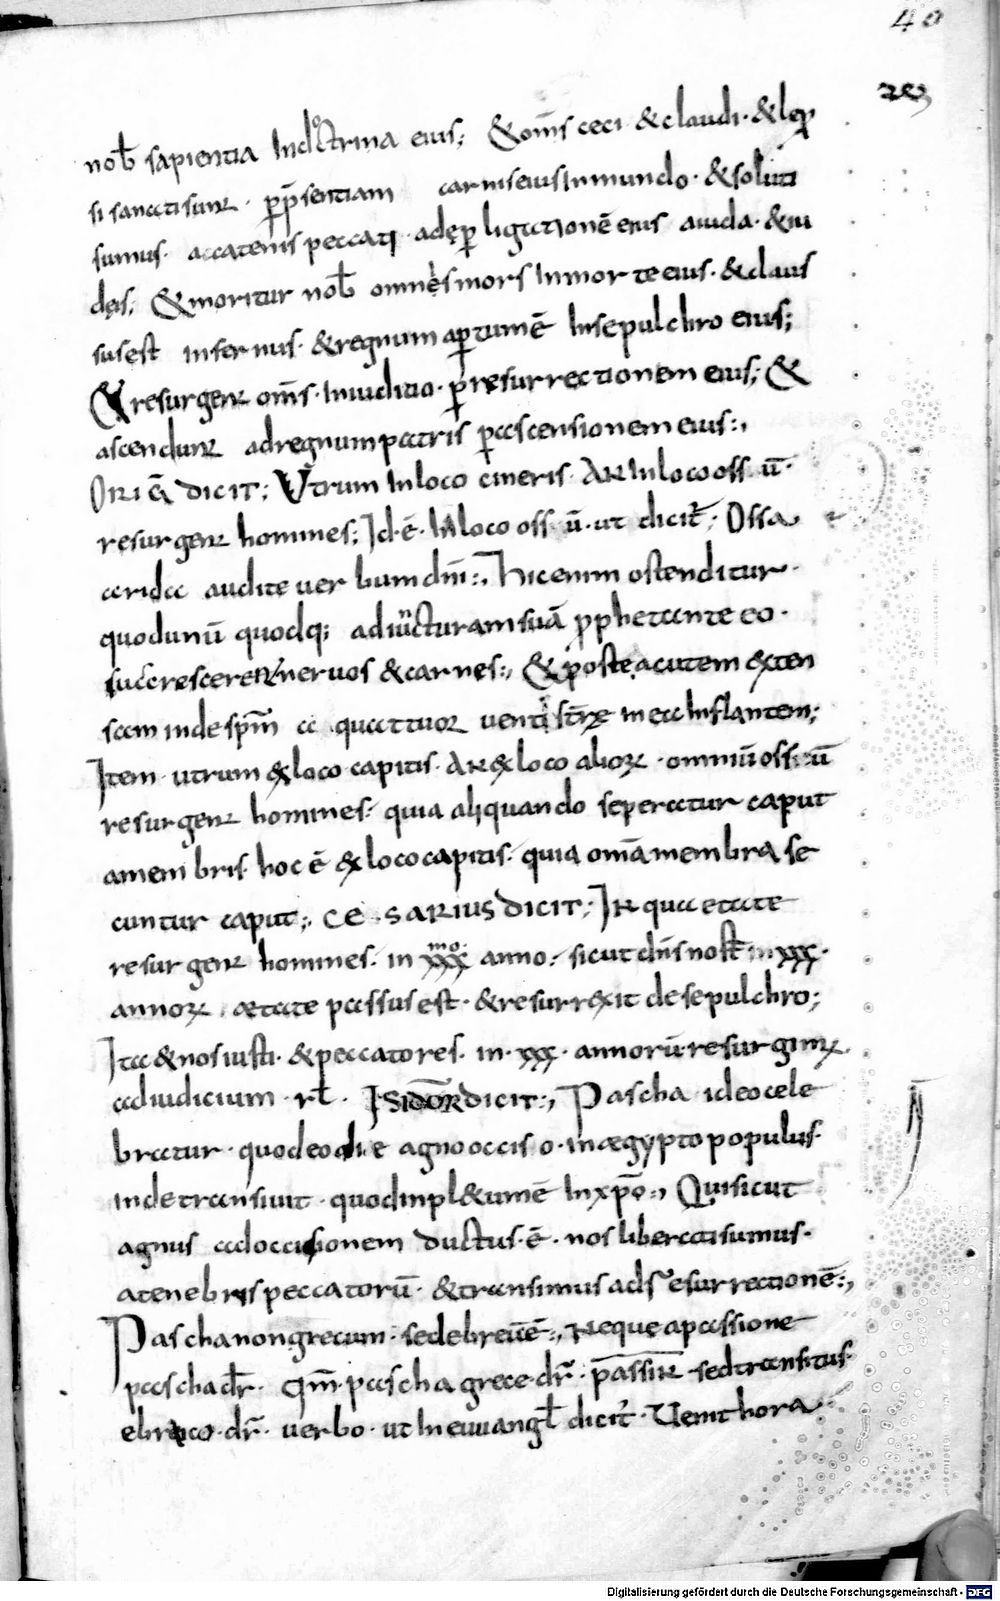 40
nob̄ sapientia Indoctrina eius; &om̄s ceci · &claudi · &lep̱
si sanctisunt · ꝑp̄sentiam carniseiusInmundo · &soluti
sumus · accatenis peccati · adeꝑ ligationē eius aiuda · &iu
deis; &moritur nob̄ omnes mors Inmorte eius · &claus
susest infernus · &regnum aꝑtumē Insepulchro eius;
&resurgent om̄s · Iniuditio · ꝑresurrectionem eius; &
ascendunt adregnumpatris ꝑascensionem eius:,
ORIGĒ DICIT; Utrum Inloco cineris · AN Inloco oss · ū ·
resurgent homines; Id · ē · Inloco oss · ū · ut dicit̄; Ossa
arida audite uerbum dnī:, Hicenim ostenditur ·
quodunū quodq; adiuncturamsuā ꝓphetante eo ·
succrescerent neruos &carnes:, &posteacutem exten
sam indesp̄m a quattuor uentis terrę inea Inflantem;
Item · utrum exloco capitis · AN exloco alior · omniū ossuū
resurgent homines · quia aliquando seperatur caput
amembris · hoc ē exloco capitis · quia om̄a membra se
cuntur caput; CESARIUS DICIT; IN qua etate
resurgent homines · in xxx mo anno · sicut dn̄s nost̄ · in xxx ·
annorum ætate passus est · &resurrexit desepulchro;
Ita &nosiusti · &peccatores · in · xxx · annorū resurgimus
adiudicium · rł · ISIDOR DICIT:, Pascha ideocele
bratur · quodeodie agnooccis o · inægyptopopulus ·
indetransiuit · quodinpl&umē Inxp̄o:, Quisicut
agnus adoccisionem ductus · ē · nos liberatisumus ·
atenebris peccatorū · &transimus adresurrectionē:,
Paschanongrecum · sedebreūē:, Neque apassione
paschadr̄ · qm̄ · pascha grece · dr̄ · passiR · sedtransitus ·
ebreco · dr̄ · uerbo · ut Ineuuangł dicit̄ · Uenithora
Digitalisierung gefördert durch die Deutsche Forschungsgemeinschaft - DFG